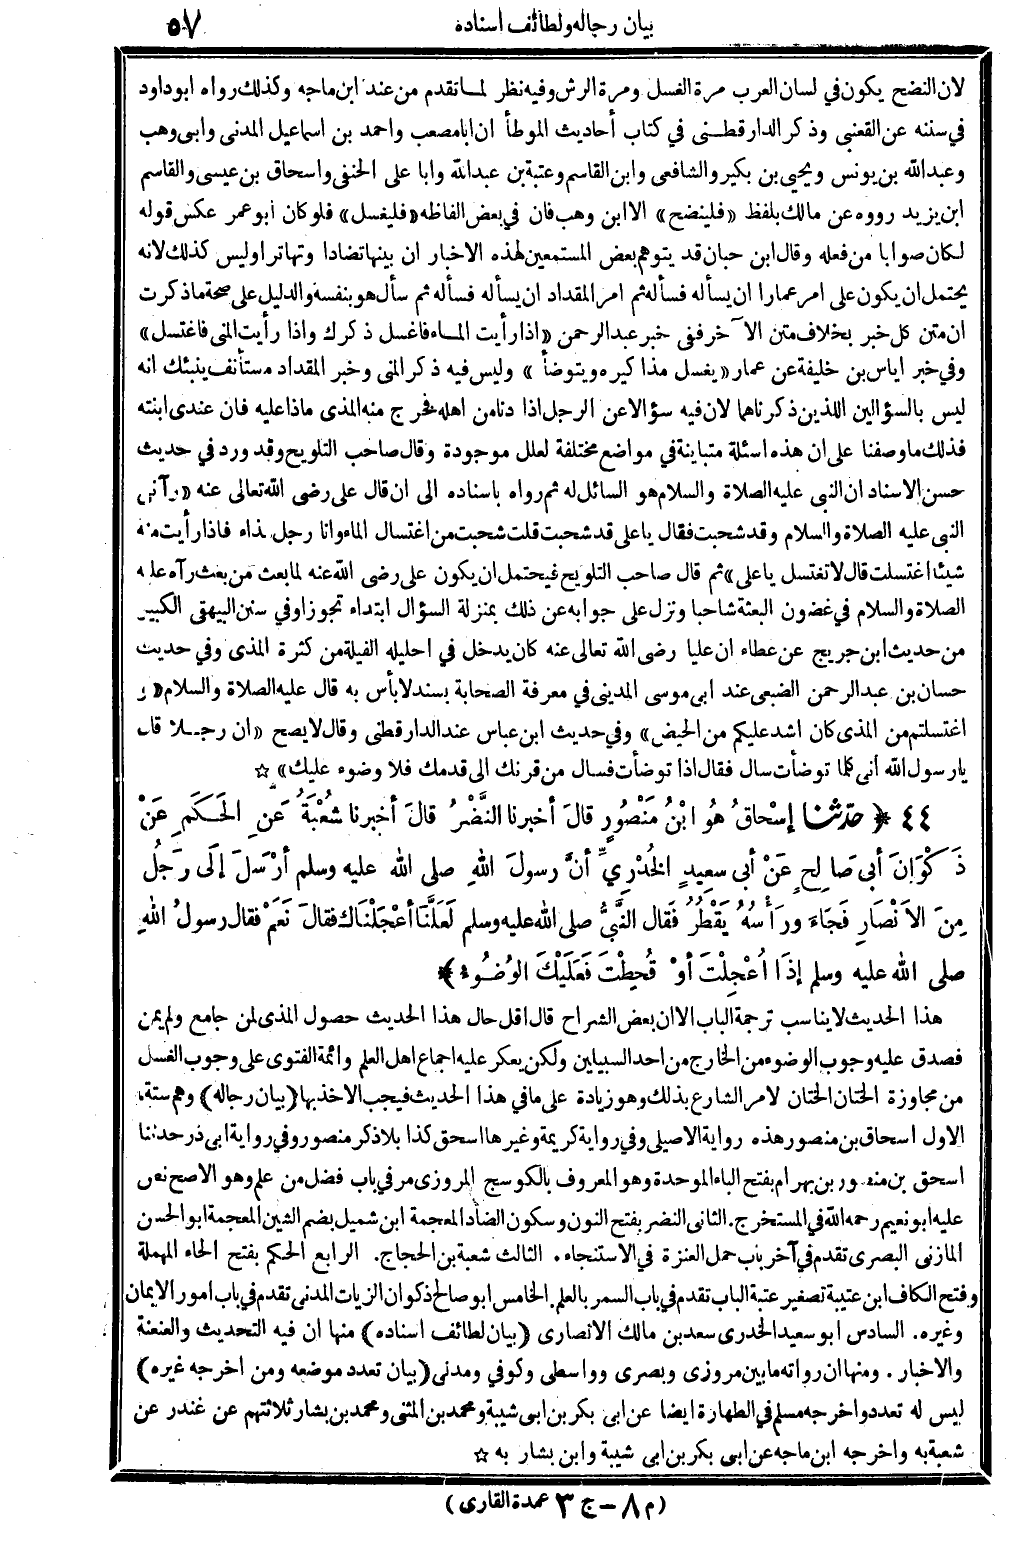 بيان رجاله ولطائف اسناده ٥٧
لان النضح يكون في لسان العرب مرة الغسل ومرة الرش وفيه نظر لما تقدم من عند ابن ماجه وكذلك رواه ابو داود
في سننه عن القعنبى وذكر الدارقطنى في كتاب أحاديث الموطأ ان ابا مصعب واحمد بن اسماعيل المدنى وابى وهب
وعبد الله بن يونس ويحيى بن بكير والشافعى وابن القاسم وعتبة بن عبدالله وابا على الحنفى واسحاق بن عيسى والقاسم
ابن يزيد رووه عن مالك بلفظ «فلينضح» الا ابن وهب فان في بعض الفاظه «فليغسل» فلو كان أبو عمر عكس قوله
لكان صوابا من فعله وقال ابن حبان قد يتوهم بعض المستمعين لهذه الاخبار ان بينها تضادا وتهاترا وليس كذلك لانه
يحتمل ان يكون على امر عمارا ان يسأله فسأله ثم امر المقداد ان يسأله فسأله ثم سأل هو بنفسه والدليل على صحة ماذكرت
ان متن كل خبر بخلاف متن الآخر ففى خبر عبد الرحمن «اذا رأيت الماء فاغسل ذكرك واذا رأيت المنى فاغتسل»
وفي خبر اياس بن خليفة عن عمار «يغسل مذا كيره ويتوضأ» وليس فيه ذكر المنى وخبر المقداد مستأنف ينبئك انه
ليس بالسؤالين اللذين ذكرناهما لان فيه سؤالا عن الرجل اذا دنا من اهله فخرج منه المذى ماذا عليه فان عندى ابنته
فذلك ما وصفنا على ان هذه اسئلة متباينة في مواضع مختلفة لعلل موجودة وقال صاحب التلويح وقد ورد في حديث
حسن الاسناد ان النبى عليه الصلاة والسلام هو السائل له ثم رواه باسناده الى ان قال على رضى الله تعالى عنه «رآنى
النبى عليه الصلاة والسلام وقد شحبت فقال يا على قد شحبت قلت شحبت من اغتسال الماء وانا رجل مذاء فاذا رأيت منه
شيئا اغتسلت قال لا تغتسل يا على» ثم قال صاحب التلويح فيحتمل ان يكون على رضى الله عنه لما بعث من بعث رآه عليه
الصلاة والسلام في غضون البعثة شاحبا ونزل على جوابه عن ذلك بمنزلة السؤال ابتداء تجوزا وفي سنن البيهقى الكبير
من حديث ابن جريج عن عطاء ان عليا رضى الله تعالى عنه كان يدخل في احليله الفيلة من كثرة المذى وفي حديث
حسان بن عبد الرحمن الضبعى عند ابى موسى المدينى في معرفة الصحابة بسند لا بأس به قال عليه الصلاة والسلام «لو
اغتسلتم من المذى كان اشد عليكم من الحيض» وفي حديث ابن عباس عند الدارقطنى وقال لا يصح «ان رجلا قال
يارسول الله أنى كلما توضأت سال فقال اذا توضأت فسال من قرنك الى قدمك فلا وضوء عليك» ☆
٤٤ ﴿ حدثنا إسْحاقُ هُوَ ابْنُ مَنْصُورٍ قالَ أخبرنا النَّضْرُ قالَ أخبرنا شُعْبَةُ عَنِ الحَكَمِ عَنْ
ذَكْوَانَ أبى صَالِحٍ عَنْ أبى سعِيدٍ الخُدْرِيِّ أنَّ رسولَ اللهِ صلى الله عليه وسلم أرْسَلَ إلَى رَجُلٍ
مِنَ الأَنْصَارِ فَجَاءَ ورَأْسُهُ يَقْطُرُ فَقال النَّبىُّ صلى الله عليه وسلم لَعَلَّنَا أعْجَلْنَاكَ فقالَ نَعَمْ فقال رسولُ اللهِ
صلى الله عليه وسلم إذَا اُعْجِلْتَ أوْ قُحِطْتَ فَعَلَيْكَ الوُضُوءُ ﴾
هذا الحديث لا يناسب ترجمة الباب الا ان بعض الشراح قال اقل حال هذا الحديث حصول المذى لمن جامع ولم يمن
فصدق عليه وجوب الوضوء من الخارج من احد السبيلين ولكن يعكر عليه اجماع اهل العلم وائمة الفتوى على وجوب الغسل
من مجاوزة الختان الختان لامر الشارع بذلك وهو زيادة على ما في هذا الحديث فيجب الاخذ بها (بيان رجاله) وهم ستة.
الاول اسحاق بن منصور هذه رواية الاصيلى وفي رواية كريمة وغيرها اسحق كذا بلا ذكر منصور وفي رواية ابى ذر حدثنا
اسحق بن منصور بن بهرام بفتح الباء الموحدة وهو المعروف بالكوسج المروزى مر في باب فضل من علم وهو الاصح نص
عليه ابو نعيم رحمه الله في المستخرج. الثانى النضر بفتح النون وسكون الضاد المعجمة ابن شميل بضم الشين المعجمة ابو الحسن
المازنى البصرى تقدم في آخر باب حمل العنزة في الاستنجاء. الثالث شعبة بن الحجاج. الرابع الحكم بفتح الحاء المهملة
وفتح الكاف ابن عتيبة تصغير عتبة الباب تقدم في باب السمر بالعلم. الخامس ابو صالح ذكوان الزيات المدنى تقدم في باب امور الايمان
وغيره. السادس ابو سعيد الخدرى سعد بن مالك الانصارى (بيان لطائف اسناده) منها ان فيه التحديث والعنعنة
والاخبار. ومنها ان رواته ما بين مروزى وبصرى وواسطى وكوفي ومدنى (بيان تعدد موضعه ومن اخرجه غيره)
ليس له تعدد واخرجه مسلم في الطهارة ايضا عن ابى بكر بن ابى شيبة ومحمد بن المثنى ومحمد بن بشار ثلاثتهم عن غندر عن
شعبة به واخرجه ابن ماجه عن ابى بكر بن ابى شيبة وابن بشار به ☆
(م ٨ – ج ٣ عمدة القارى)